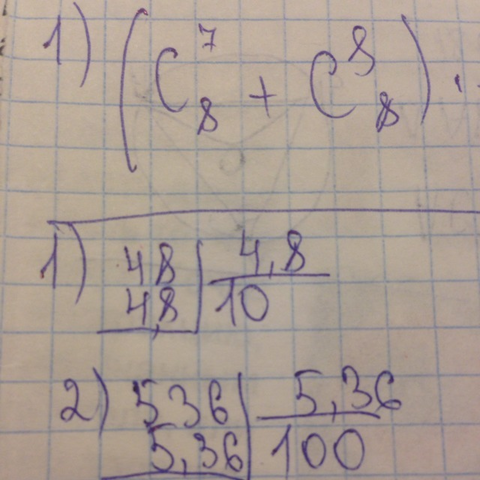 1) (C⁷₈ + C⁸₈) ·
1) 48 | 4,8
4,8 | 10
2) 536 | 5,36
5,36 | 100